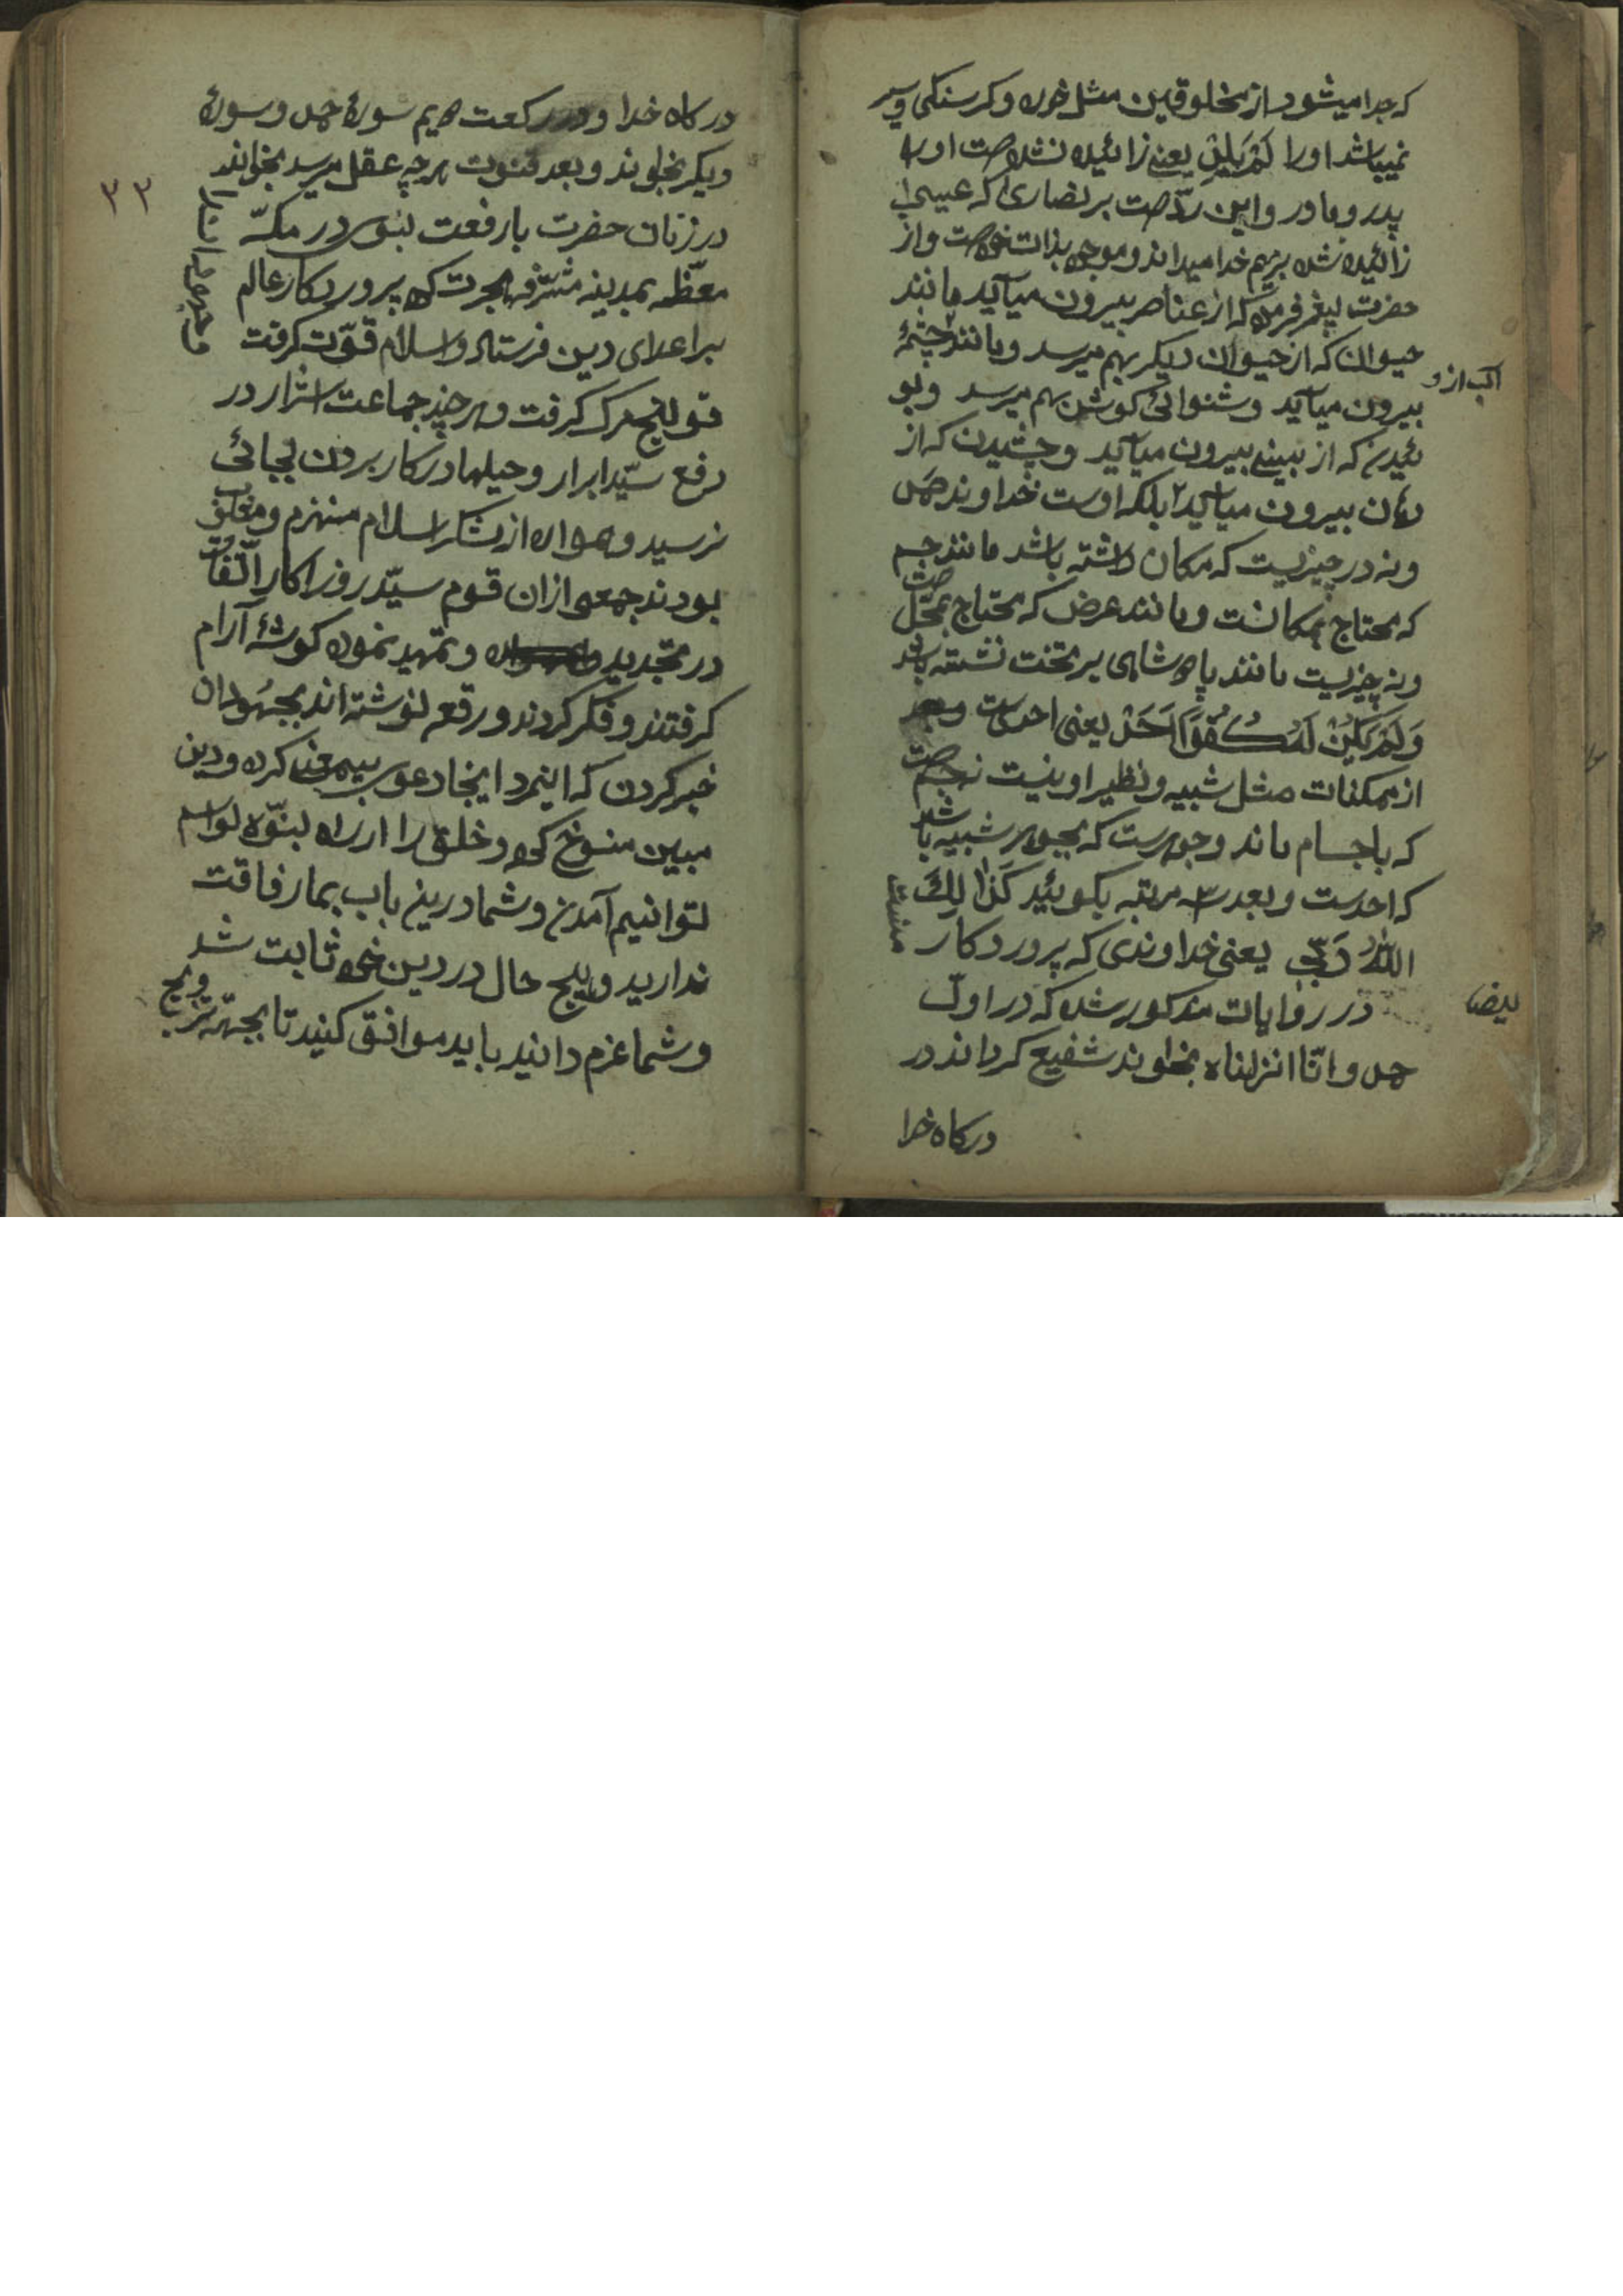 که جدا میشود از مخلوقین مثل خوره و کرسنکی و سیر
نمیباشد او را لَمْ یَلِدْ یعنے زائیده نشده است او را
پدر و مادر و این ردّست بر نصاری که عیسی
زائیده شده بر هم خدا میداند و موجود بذات خود است و از
حضرت پیغمبر فرموده که از عناصر بیرون میآید مانند
حیوان که از حیوان دیکر بهم میرسد و مانند چشمهٔ
آب از و
بیرون میآید و شنوائی کوش بهم میرسد و بو
ئیدن که از بینے بیرون میآید و چشیدن که از
دهان بیرون میآید بلکه اوست خداوند صمد
و نه در چیزیست که مکان داشته باشد مانند جسم
که محتاج بمکانست و مانند عرض که محتاج بمحل است
و نه چیزیست مانند پادشاهی بر تخت نشسته باشد
وَلَمْ یَکُنْ لَهُ کُفُوًا اَحَدٌ یعنی احدی
از ممکنات مثل شبیه و نظیر او نیست نه جسم است
که باجسام ماند و جوهرست که بجوهر شبیه باشد
که احدست و بعد سه مرتبه بکوئید کَذٰلِكَ
اللّٰهُ رَبّی یعنی خداوندی که پروردکار منست
ایضا
در روایات مذکور شده که در اول
حمد و انّا انزلناه بخوانند شفیع کرداند در
درکاه خدا
درکاه خدا و در رکعت دویم سورهٔ حمد و سورهٔ
دیکر بخوانند و بعد قنوت هر چه عقل میرسد بخوانند
۳۲
در زنان حضرت بارفعت نبوی در مکّه
معظّمه بمدینه مشرّفه هجرت کرد پروردکار عالم
بر اعدای دین فرستاد و اسلام قوّت کرفت
قولنج مرک کرفت و هر چند جماعت اشرار در
دفع سیّد ابرار و حیلها در کار بردن بجائی
نرسید و همواره از لشکر اسلام منهزم و مغلوب
بودند جمعی ازان قوم سیّه روزکار اتّفاق
در تجدید و تمهید نموده کوشهٔ آرام
کرفتند و فکر کردند و رقعه نوشته اند بجهودان
خبر کردن که اینمرد اینجا دعوی پیغمبری کرده و دین
مبین منسوخ کرده و خلق را از راه
نتوانیم آمدن و شما درین باب بما رفاقت
ندارید و هیچ حال در دین خود ثابت شد
و شما عزم دانید باید موافق کنید تا بجهة ترویج